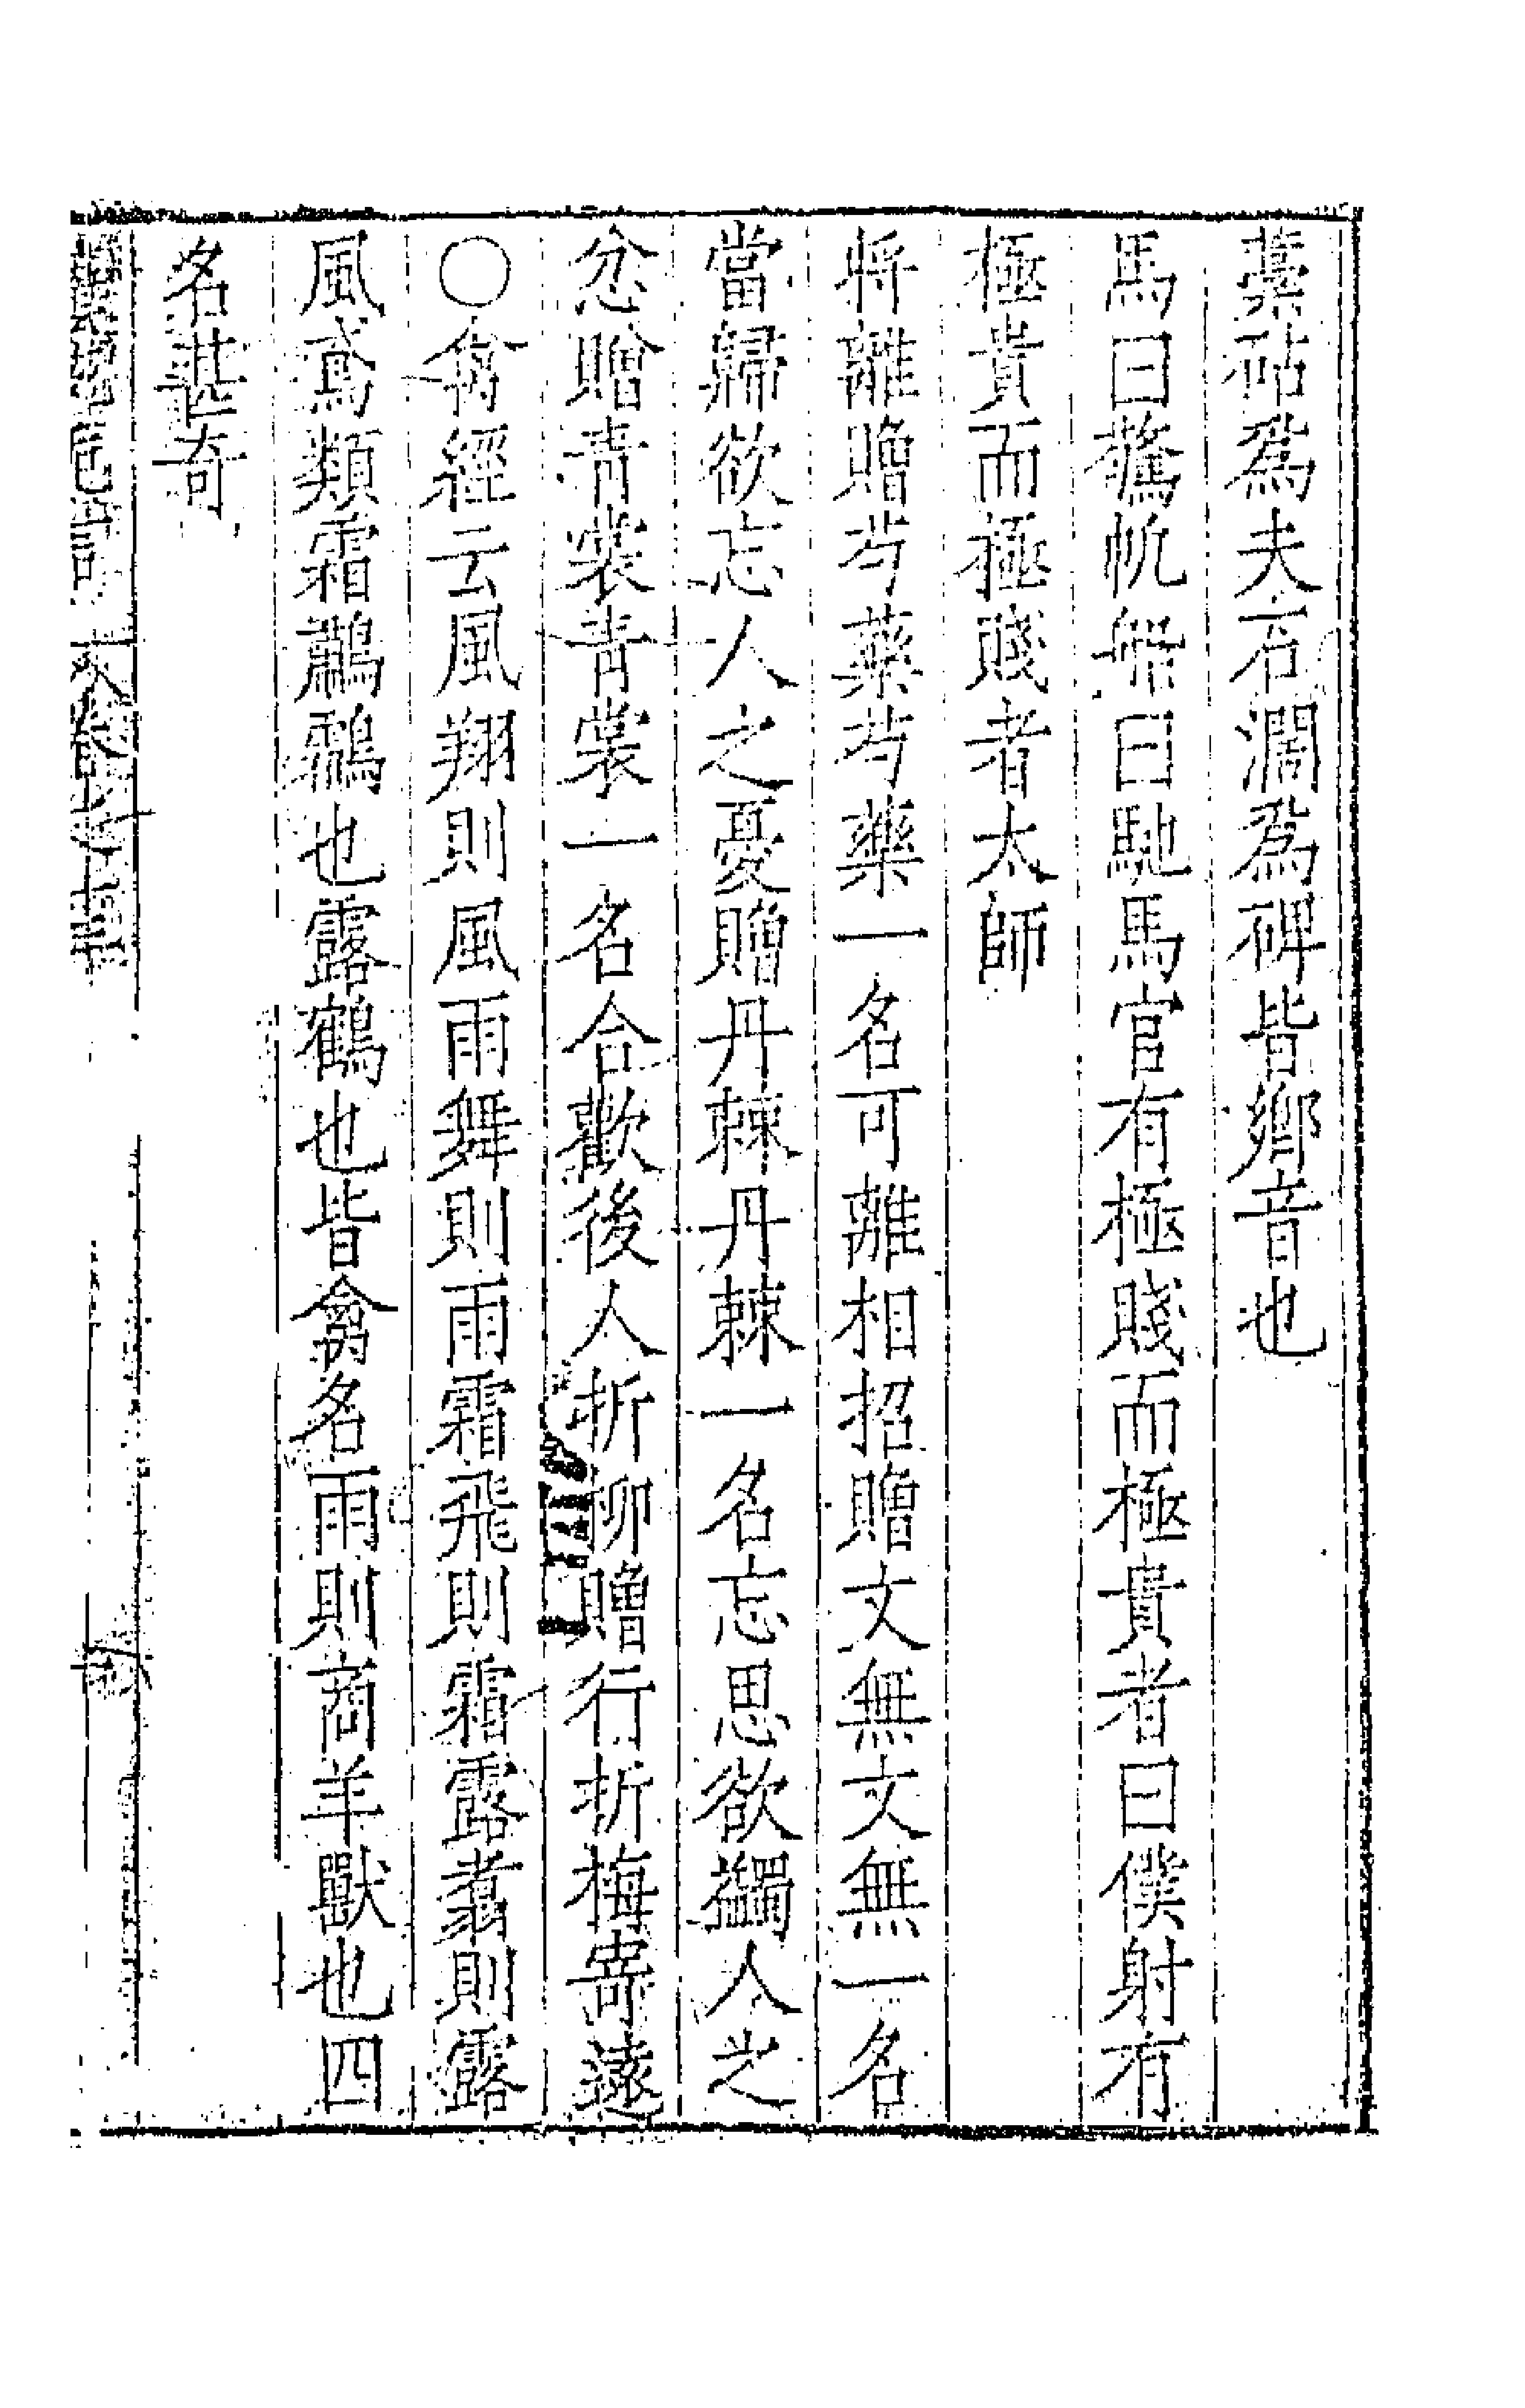 藁砧爲夫石濶爲碑皆鄉音也
馬曰驚帆船曰馳馬官有極賤而極貴者曰僕射有
極貴而極賤者太師
將離贈芍藥芍藥一名可離相招贈文無文無一名
當歸欲忘人之憂贈丹棘丹棘一名忘思欲蠲人之
忿贈青裳青裳一名合歡後人折柳贈行折梅寄遠
〇禽經云風翔則風雨舞則雨霜飛則霜露翥則露
風鳶類霜鷫鸘也露鶴也皆禽名雨則商羊獸也四
名甚奇